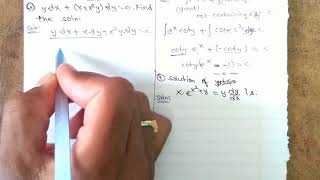 y dx + (x+x²y) dy = 0. Find
the soln:
Soln: y.dx + x.dy + x²y.dy = 0.
not containing
∫ e^x coty + ∫ cosec²y dy = c
coty e^x + (-coty) = c
coty(e^x - 1) = c
Solution of
Soln: x.e^(x²+y) = y dy/dx is